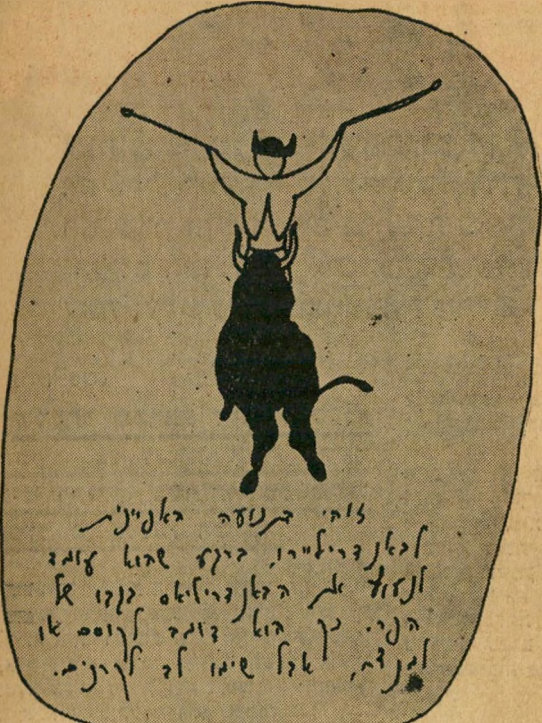 זוהי התנועה האפיינית
לבאנדריליירו, ברגע שהוא עומד
לנעוץ את הבאנדריליאס בגבו של
הפר. כך הוא דומה לקוסם או
למנצח, אבל שימו לב לקרניים.